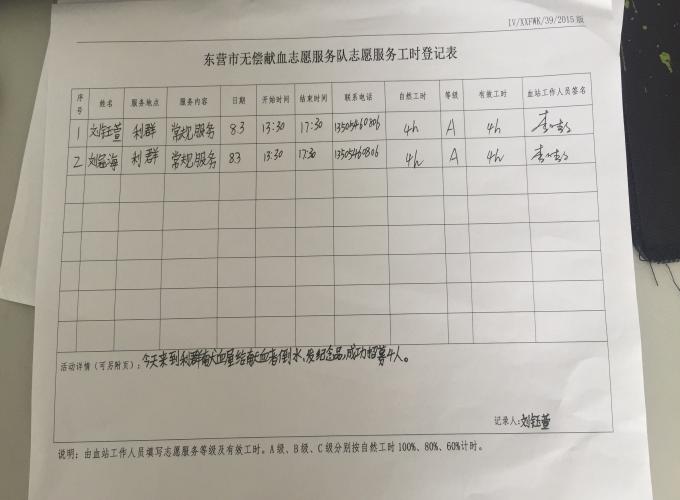 IV/XXFWK/39/2015 版
东营市无偿献血志愿服务队志愿服务工时登记表
序号 姓名 服务地点 服务内容 日期 开始时间 结束时间 联系电话 自然工时 等级 有效工时 血站工作人员签名
1 刘钰萱 利群 常规服务 8.3 13:30 17:30 13505460806 4h A 4h
2 刘冠海 利群 常规服务 8.3 13:30 17:30 13505460806 4h A 4h
活动详情（可另附页）：今天来到利群献血屋给献血者倒水、发纪念品，成功招募4人。
记录人：刘钰萱
说明：由血站工作人员填写志愿服务等级及有效工时。A级、B级、C级分别按自然工时100%、80%、60%计时。